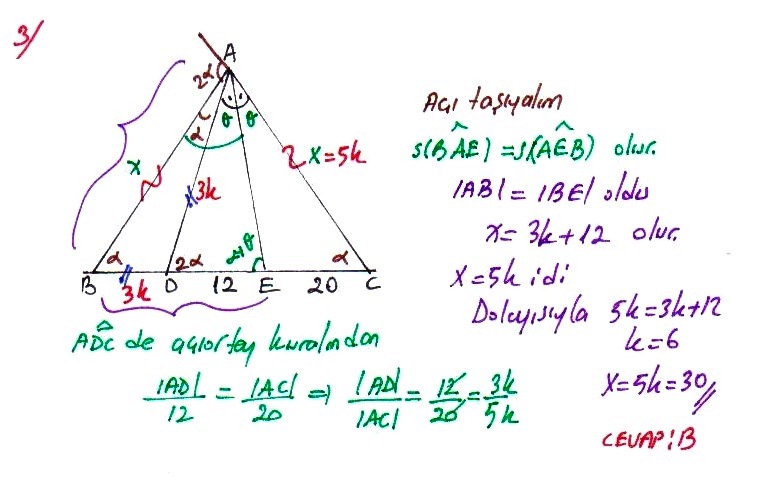 3/
A
2α
α
θ θ
x
x=5k
3k
α
2α
α+θ
α
B
3k
D
12
E
20
C
Açı taşıyalım
s(BÂE) = s(AÊB) olur.
|AB| = |BE| oldu
x = 3k+12 olur.
x = 5k idi
Dolayısıyla 5k=3k+12
k=6
x=5k=30//
CEVAP: B
ADC de açıortay kuralından
|AD|/12 = |AC|/20 ⇒ |AD|/|AC| = 12/20 = 3k/5k